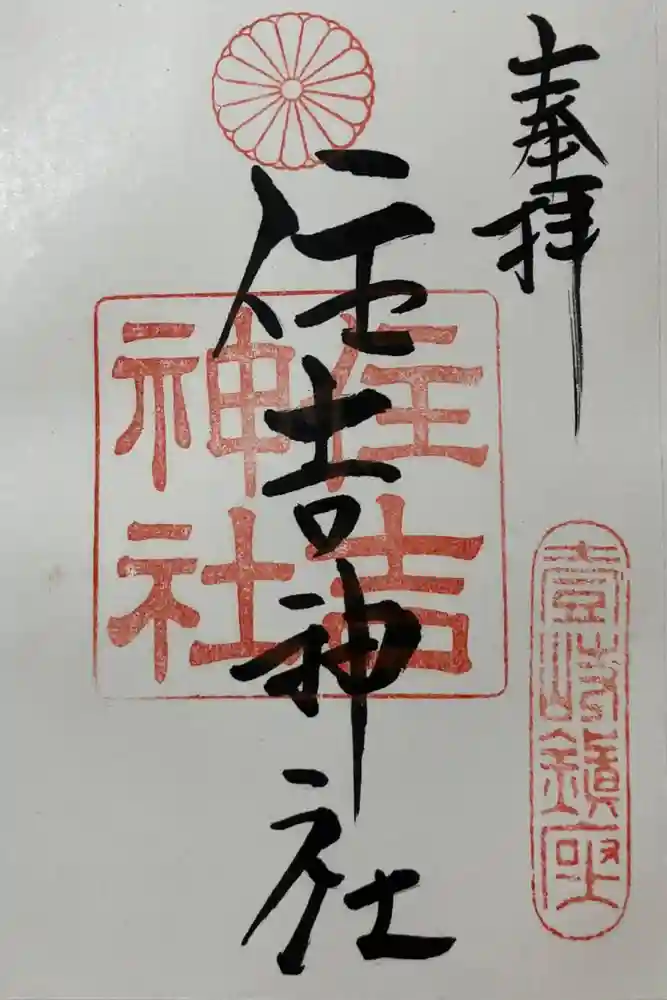 奉拝
住吉神社
住吉
神社
壱岐鎮座